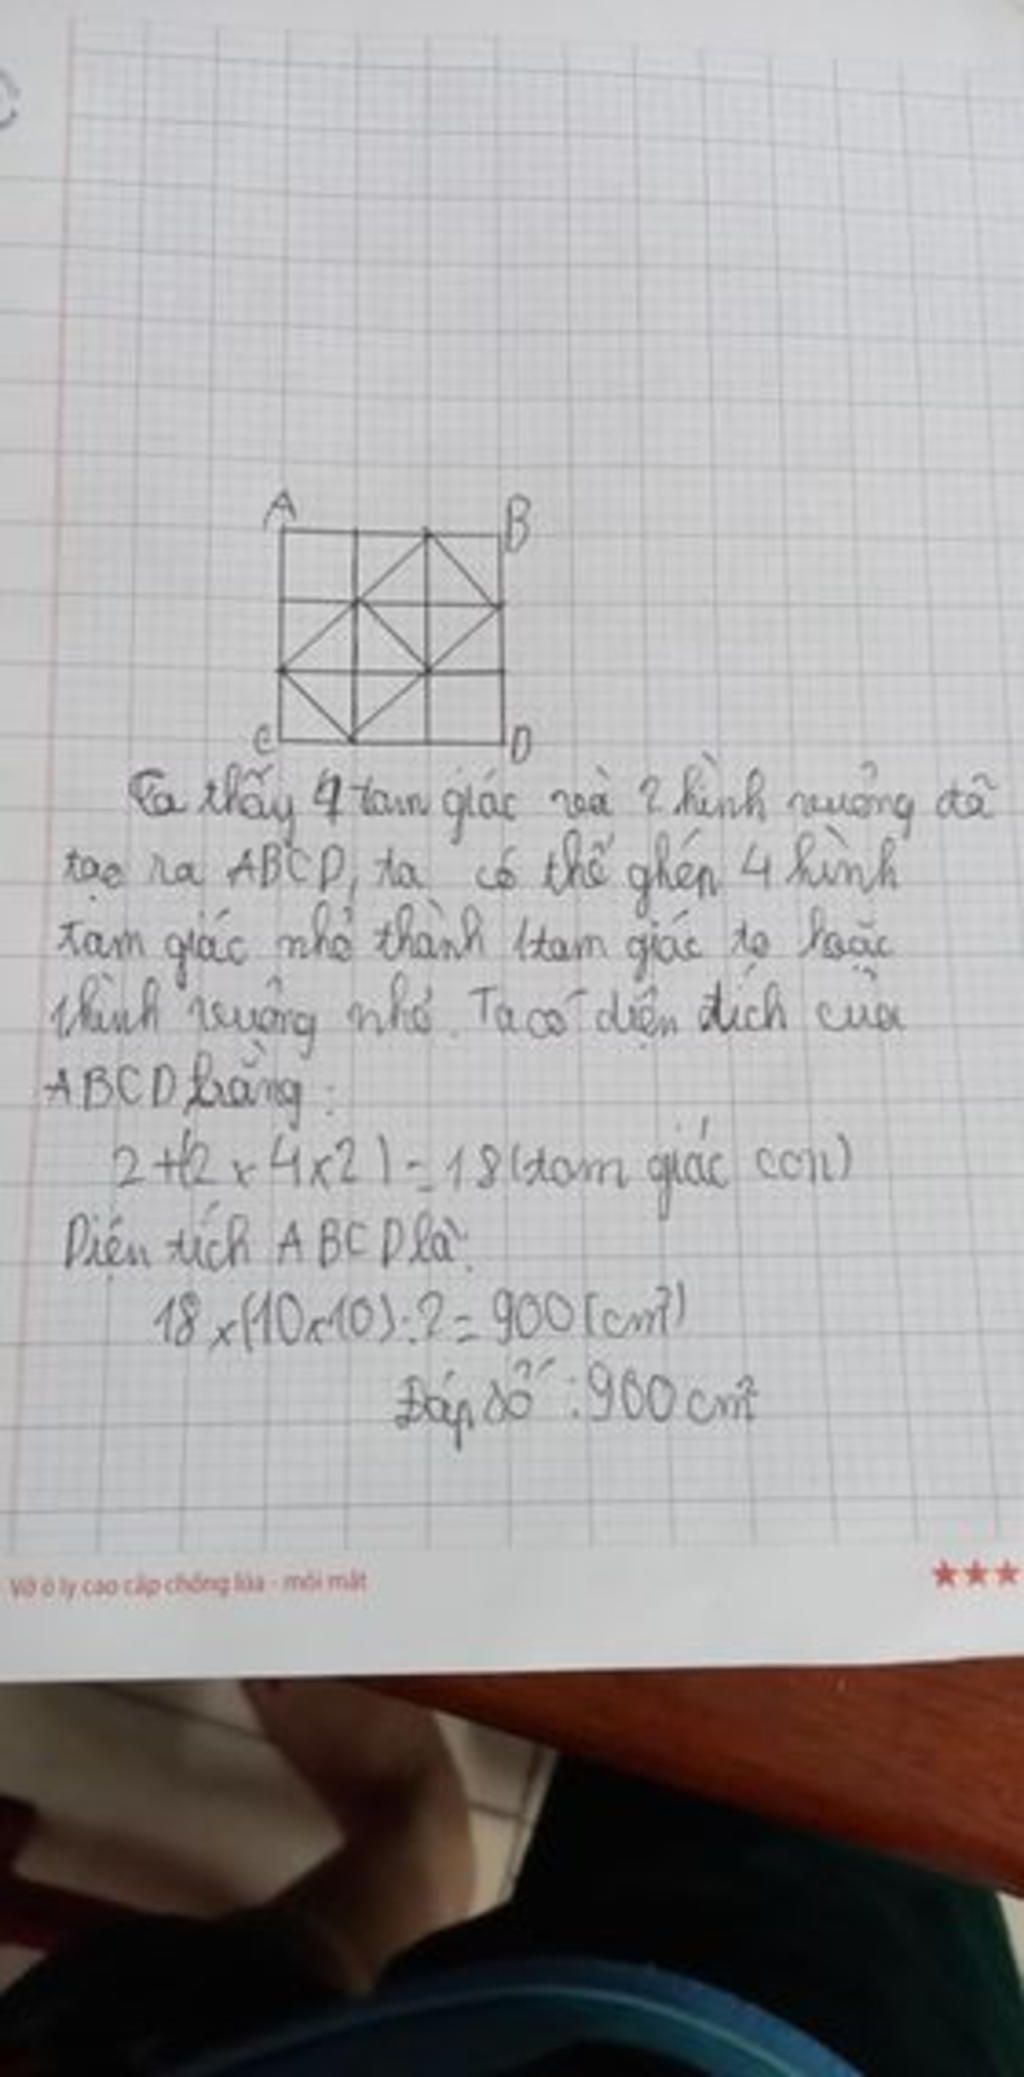 A
B
C
D
Ta thấy 4 tam giác và 2 hình vuông đã
tạo ra ABCD, ta có thể ghép 4 hình
tam giác nhỏ thành 1 tam giác to hoặc
1 hình vuông nhỏ. Ta có diện tích của
ABCD bằng:
2+(2 x 4 x 2) = 18 (tam giác con)
Diện tích ABCD là:
18 x (10 x 10) : 2 = 900 (cm²)
Đáp số : 900 cm²
Vở ô ly cao cấp chống lóa - mỏi mắt